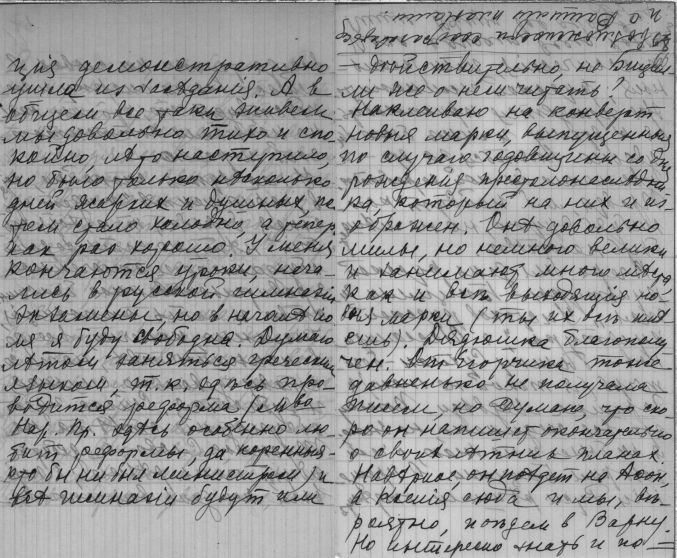 ція демонстративно
ушла из заседанія. А в
общем все таки живем
мы довольно тихо и спо-
койно, лѣто наступило,
но было только нѣсколько
дней жарких и душных, по
том стало холодно, а тепер
как раз хорошо. У меня
кончаются уроки, нача-
лись в русской гимназіи
экзамены, но в началѣ ію
ля я буду свободна. Думаю
лѣтом заняться греческим
языком, т. к. здѣсь про-
водится реформа (М-во
Нар. Пр. здѣсь особенно лю-
бит реформы, да коренныя
кто бы ни был министром) и
всѣ гимназіи будут или
— дѣйствительно, но
ли ясно о нем читать?
Наклеиваю на конверт
новыя марки, выпущенныя
по случаю годовщины со дня
рожденія престолонаслѣдни-
ка, который на них и из-
ображен. Онѣ довольно
милы, но немного велики
и занимают много мѣста
как и всѣ выходящія но-
выя марки (ты их всѣ имѣ
ешь). Дядюшка благополу
чен. От Игорчика тоже
давненько не получала
писем, но думаю, что ско
ро он напишет окончательно
о своих лѣтних планах.
Навѣрное, он поѣдет на Афон,
а послѣ сюда и мы, вѣ-
роятно, поѣдем в Варну.
Но интересно знать и по-